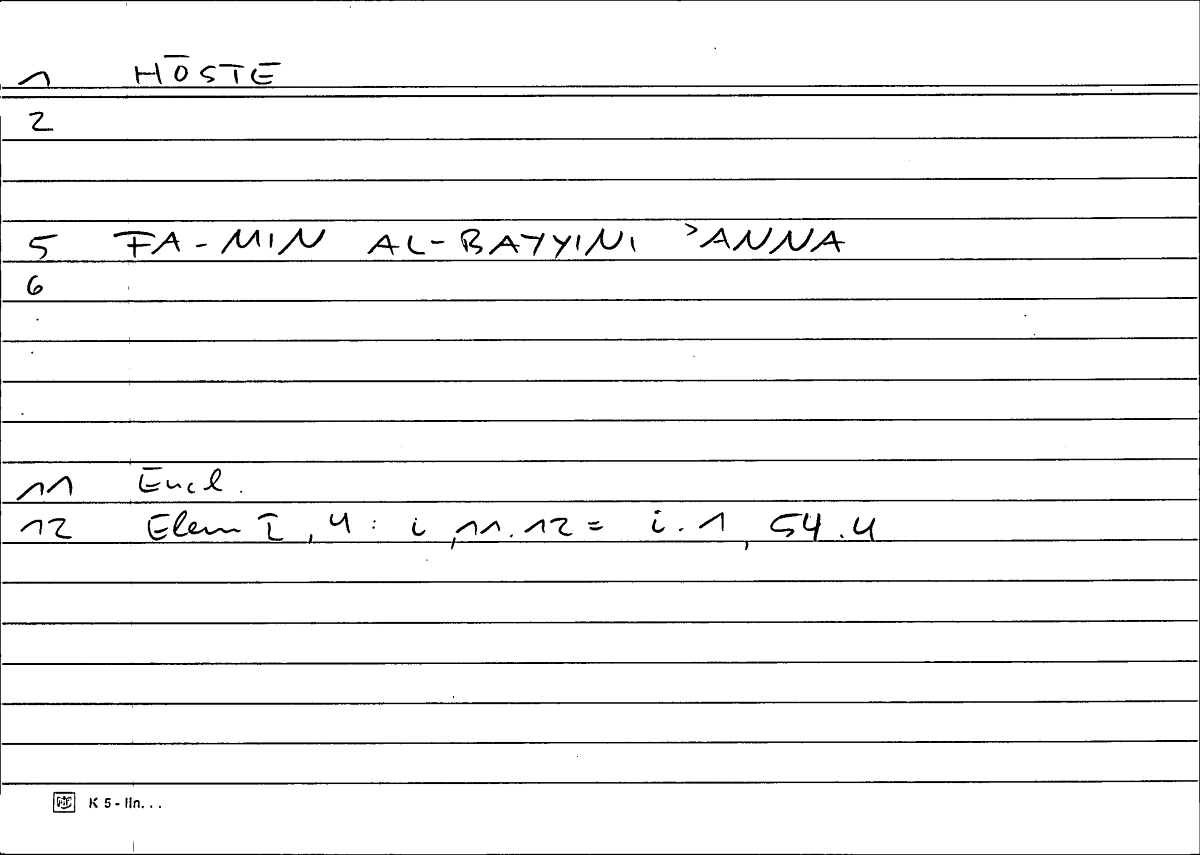 1 HŌSTE
2
5 FA-MIN AL-BAYYINI ʾANNA
6
11 Eucl.
12 Elem I, 4: i, 11.12 = i.1, 54.4
K 5 - lin...